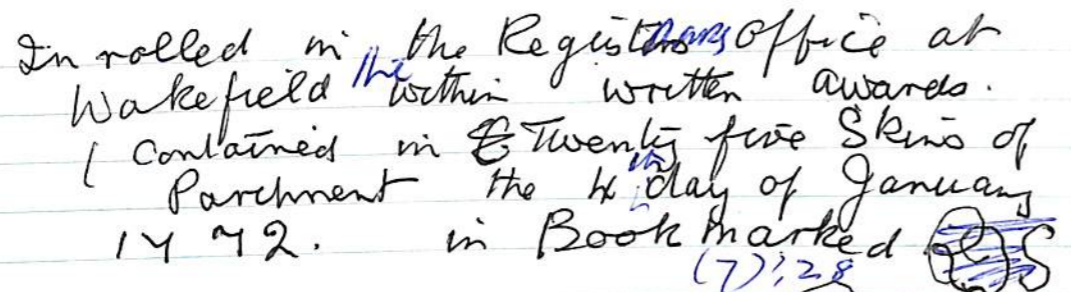 Inrolled in the Registrars Office at
Wakefield the within written awards.
( Contained in Twenty five Skins of
Parchment the 4th day of January
1772. in Book Marked S
(7) 28